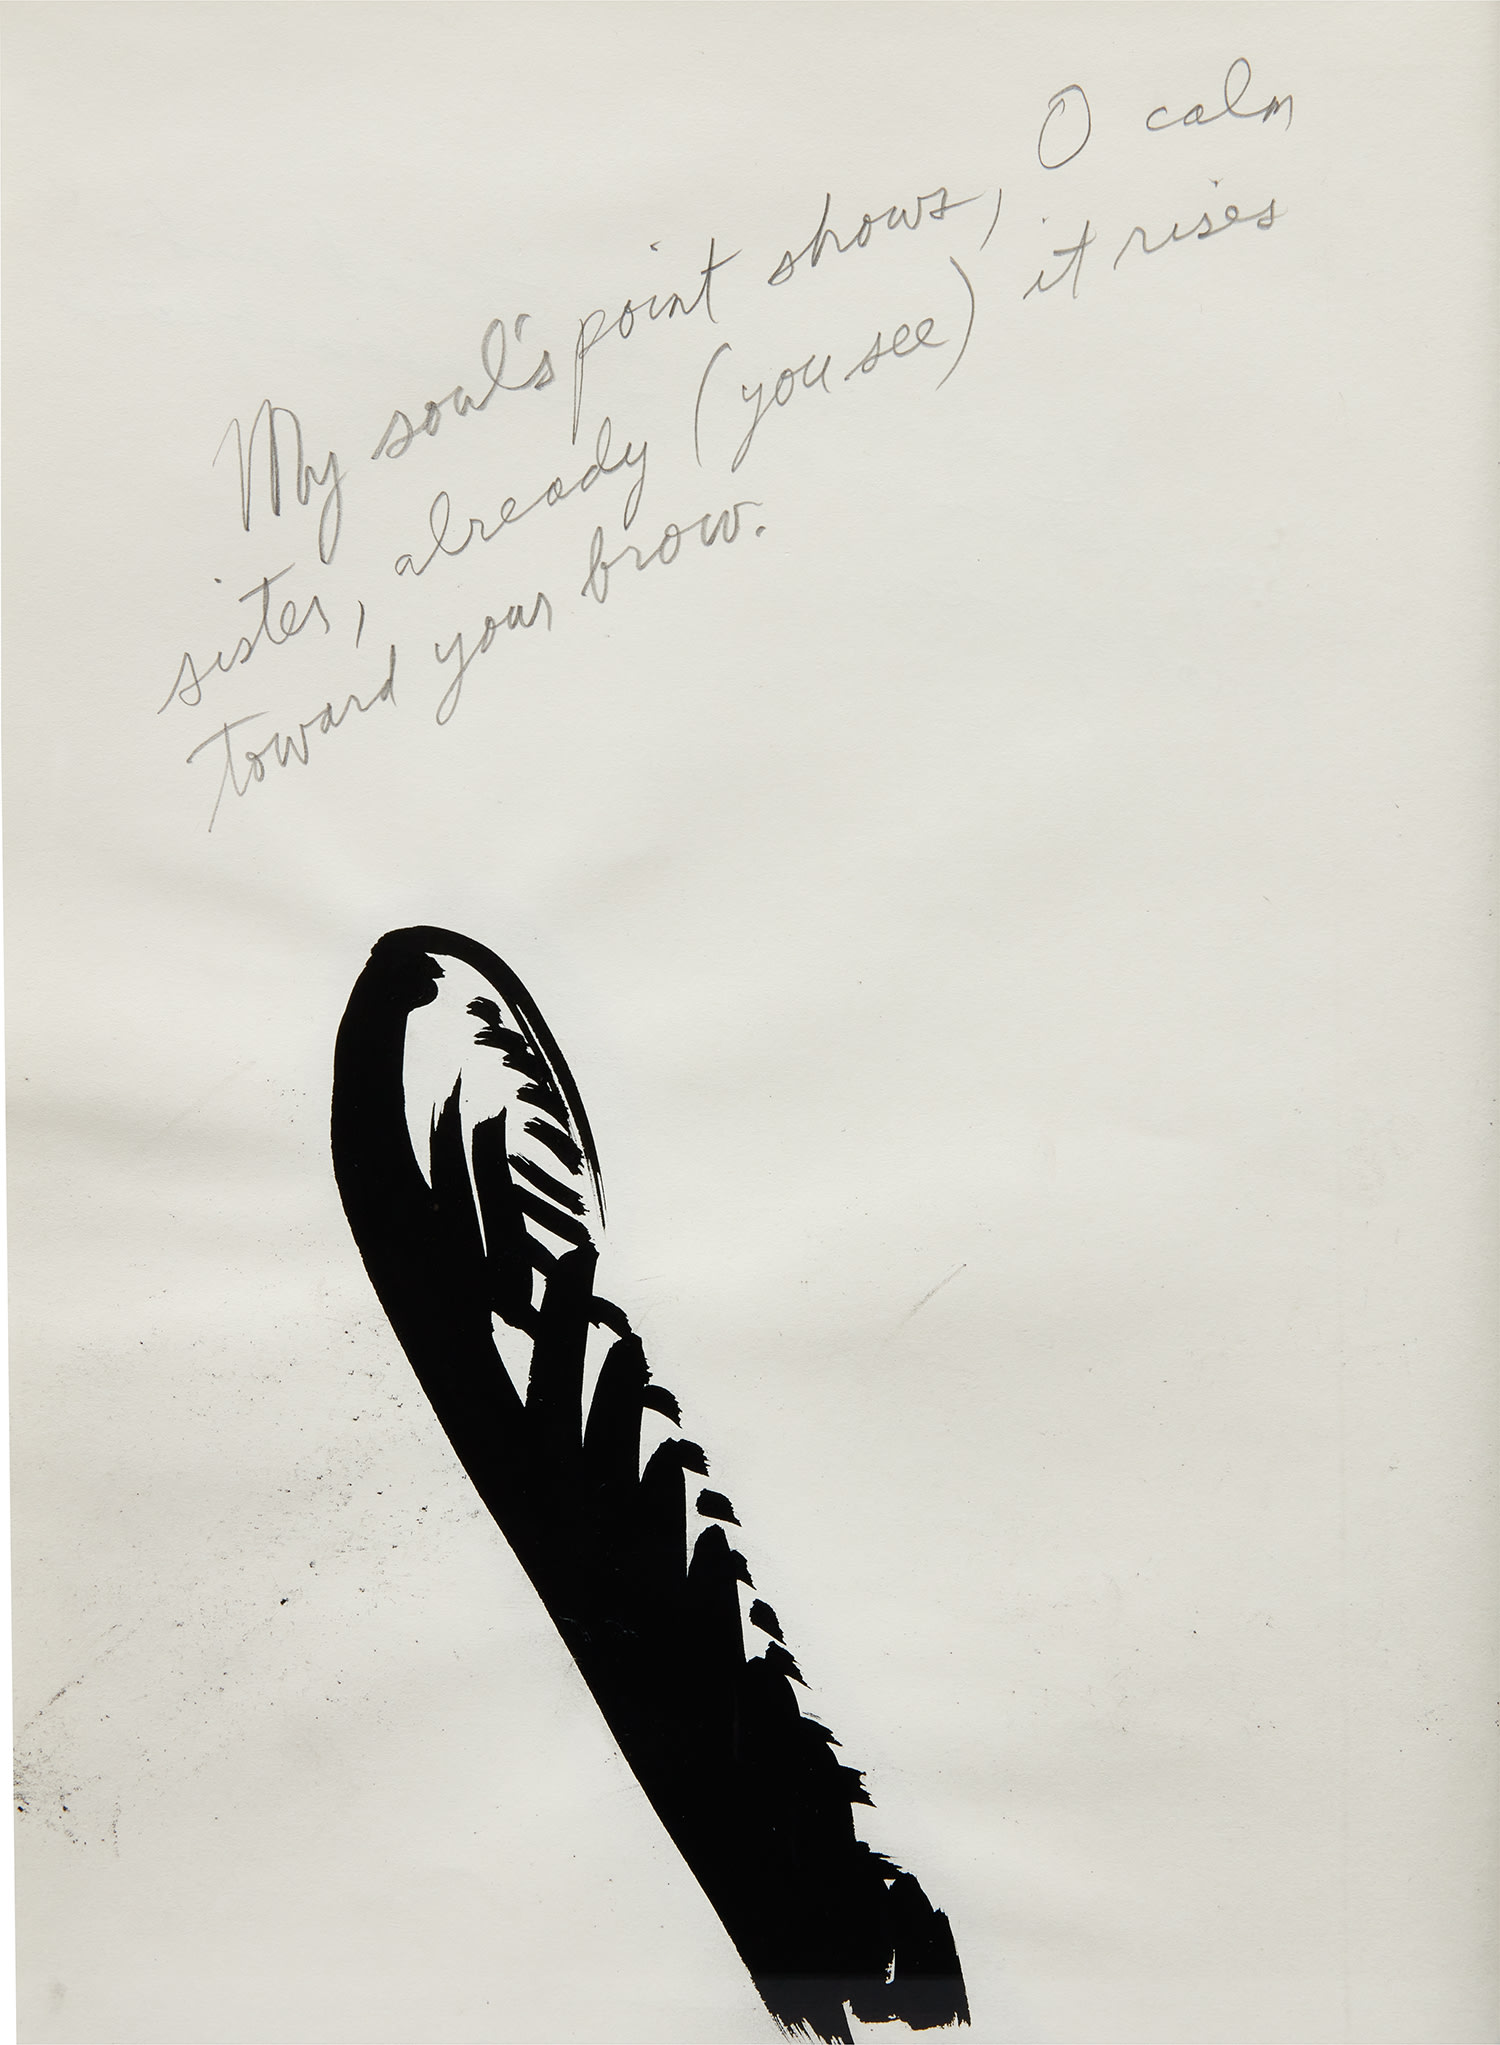 My soul's point shows, O calm
sister, already (you see) it rises
toward your brow.